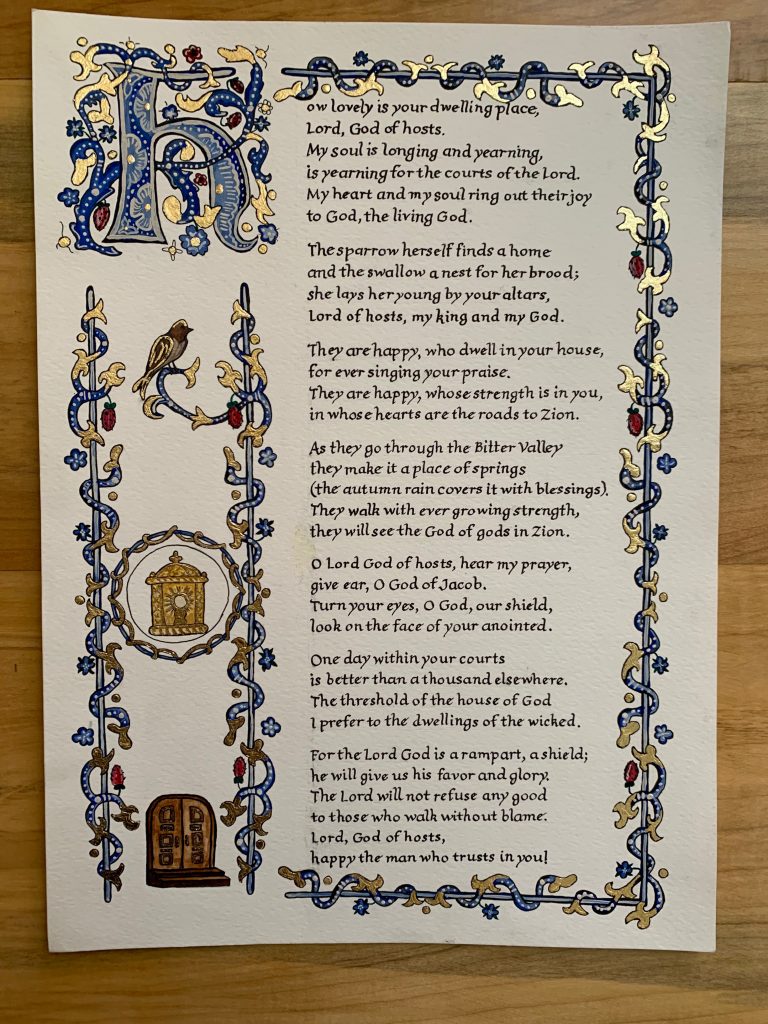 How lovely is your dwelling place,
Lord, God of hosts.
My soul is longing and yearning,
is yearning for the courts of the Lord.
My heart and my soul ring out their joy
to God, the living God.
The sparrow herself finds a home
and the swallow a nest for her brood;
she lays her young by your altars,
Lord of hosts, my king and my God.
They are happy, who dwell in your house,
for ever singing your praise.
They are happy, whose strength is in you,
in whose hearts are the roads to Zion.
As they go through the Bitter Valley
they make it a place of springs
(the autumn rain covers it with blessings).
They walk with ever growing strength,
they will see the God of gods in Zion.
O Lord God of hosts, hear my prayer,
give ear, O God of Jacob.
Turn your eyes, O God, our shield,
look on the face of your anointed.
One day within your courts
is better than a thousand elsewhere.
The threshold of the house of God
I prefer to the dwellings of the wicked.
For the Lord God is a rampart, a shield;
he will give us his favor and glory.
The Lord will not refuse any good
to those who walk without blame.
Lord, God of hosts,
happy the man who trusts in you!